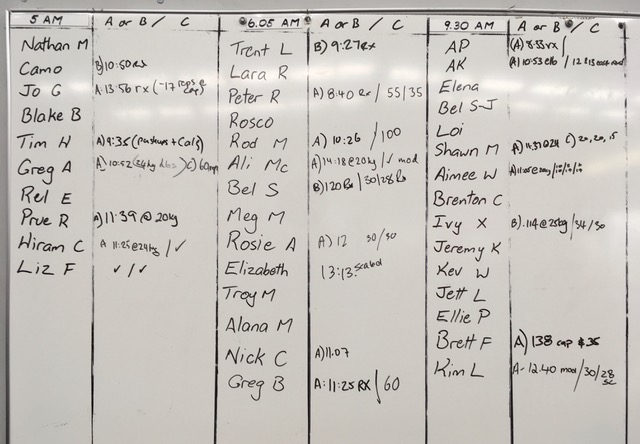 5 AM A or B / C 6.05 AM A or B / C 9.30 AM A or B / C
Nathan M
Camo B) 10:50 rx
Jo G A: 13:56 rx (-17 reps @ cap)
Blake B
Tim H A) 9:35 (pushups + Cals)
Greg A A) 10:52 (24kg dbs) C) 60
Rel E
Prue R A) 11:39 @ 20kg
Hiram C A 11:25 @ 24kg / ✓
Liz F ✓ / ✓
Trent L B) 9:27 rx
Lara R
Peter R A) 8:40 / 55/35
Rosco
Rod M A) 10:26 / 100
Ali Mc A) 14:18 @ 20kg / ✓ mod
Bel S B) 120 Rx / 30/28 Rx
Meg M
Rosie A A) 12 30/30
Elizabeth 13:13 scaled
Troy M
Alana M
Nick C A) 11.07
Greg B A: 11:25 RX / 60
AP (A) 8:55 rx /
AK (A) 10:53 / 12 &13
Elena
Bel S-J
Loi
Shawn M A) 11:37 @ 24 C) 20, 20, 15
Aimee W A) 11:08 @ 20kg / 10/10/10
Brenton C
Ivy X B) .114 @ 25kg / 34 / 30
Jeremy K
Kev W
Jett L
Ellie P
Brett F A) 138 cap $ 35
Kim L A- 12.40 mod / 30/28 sc